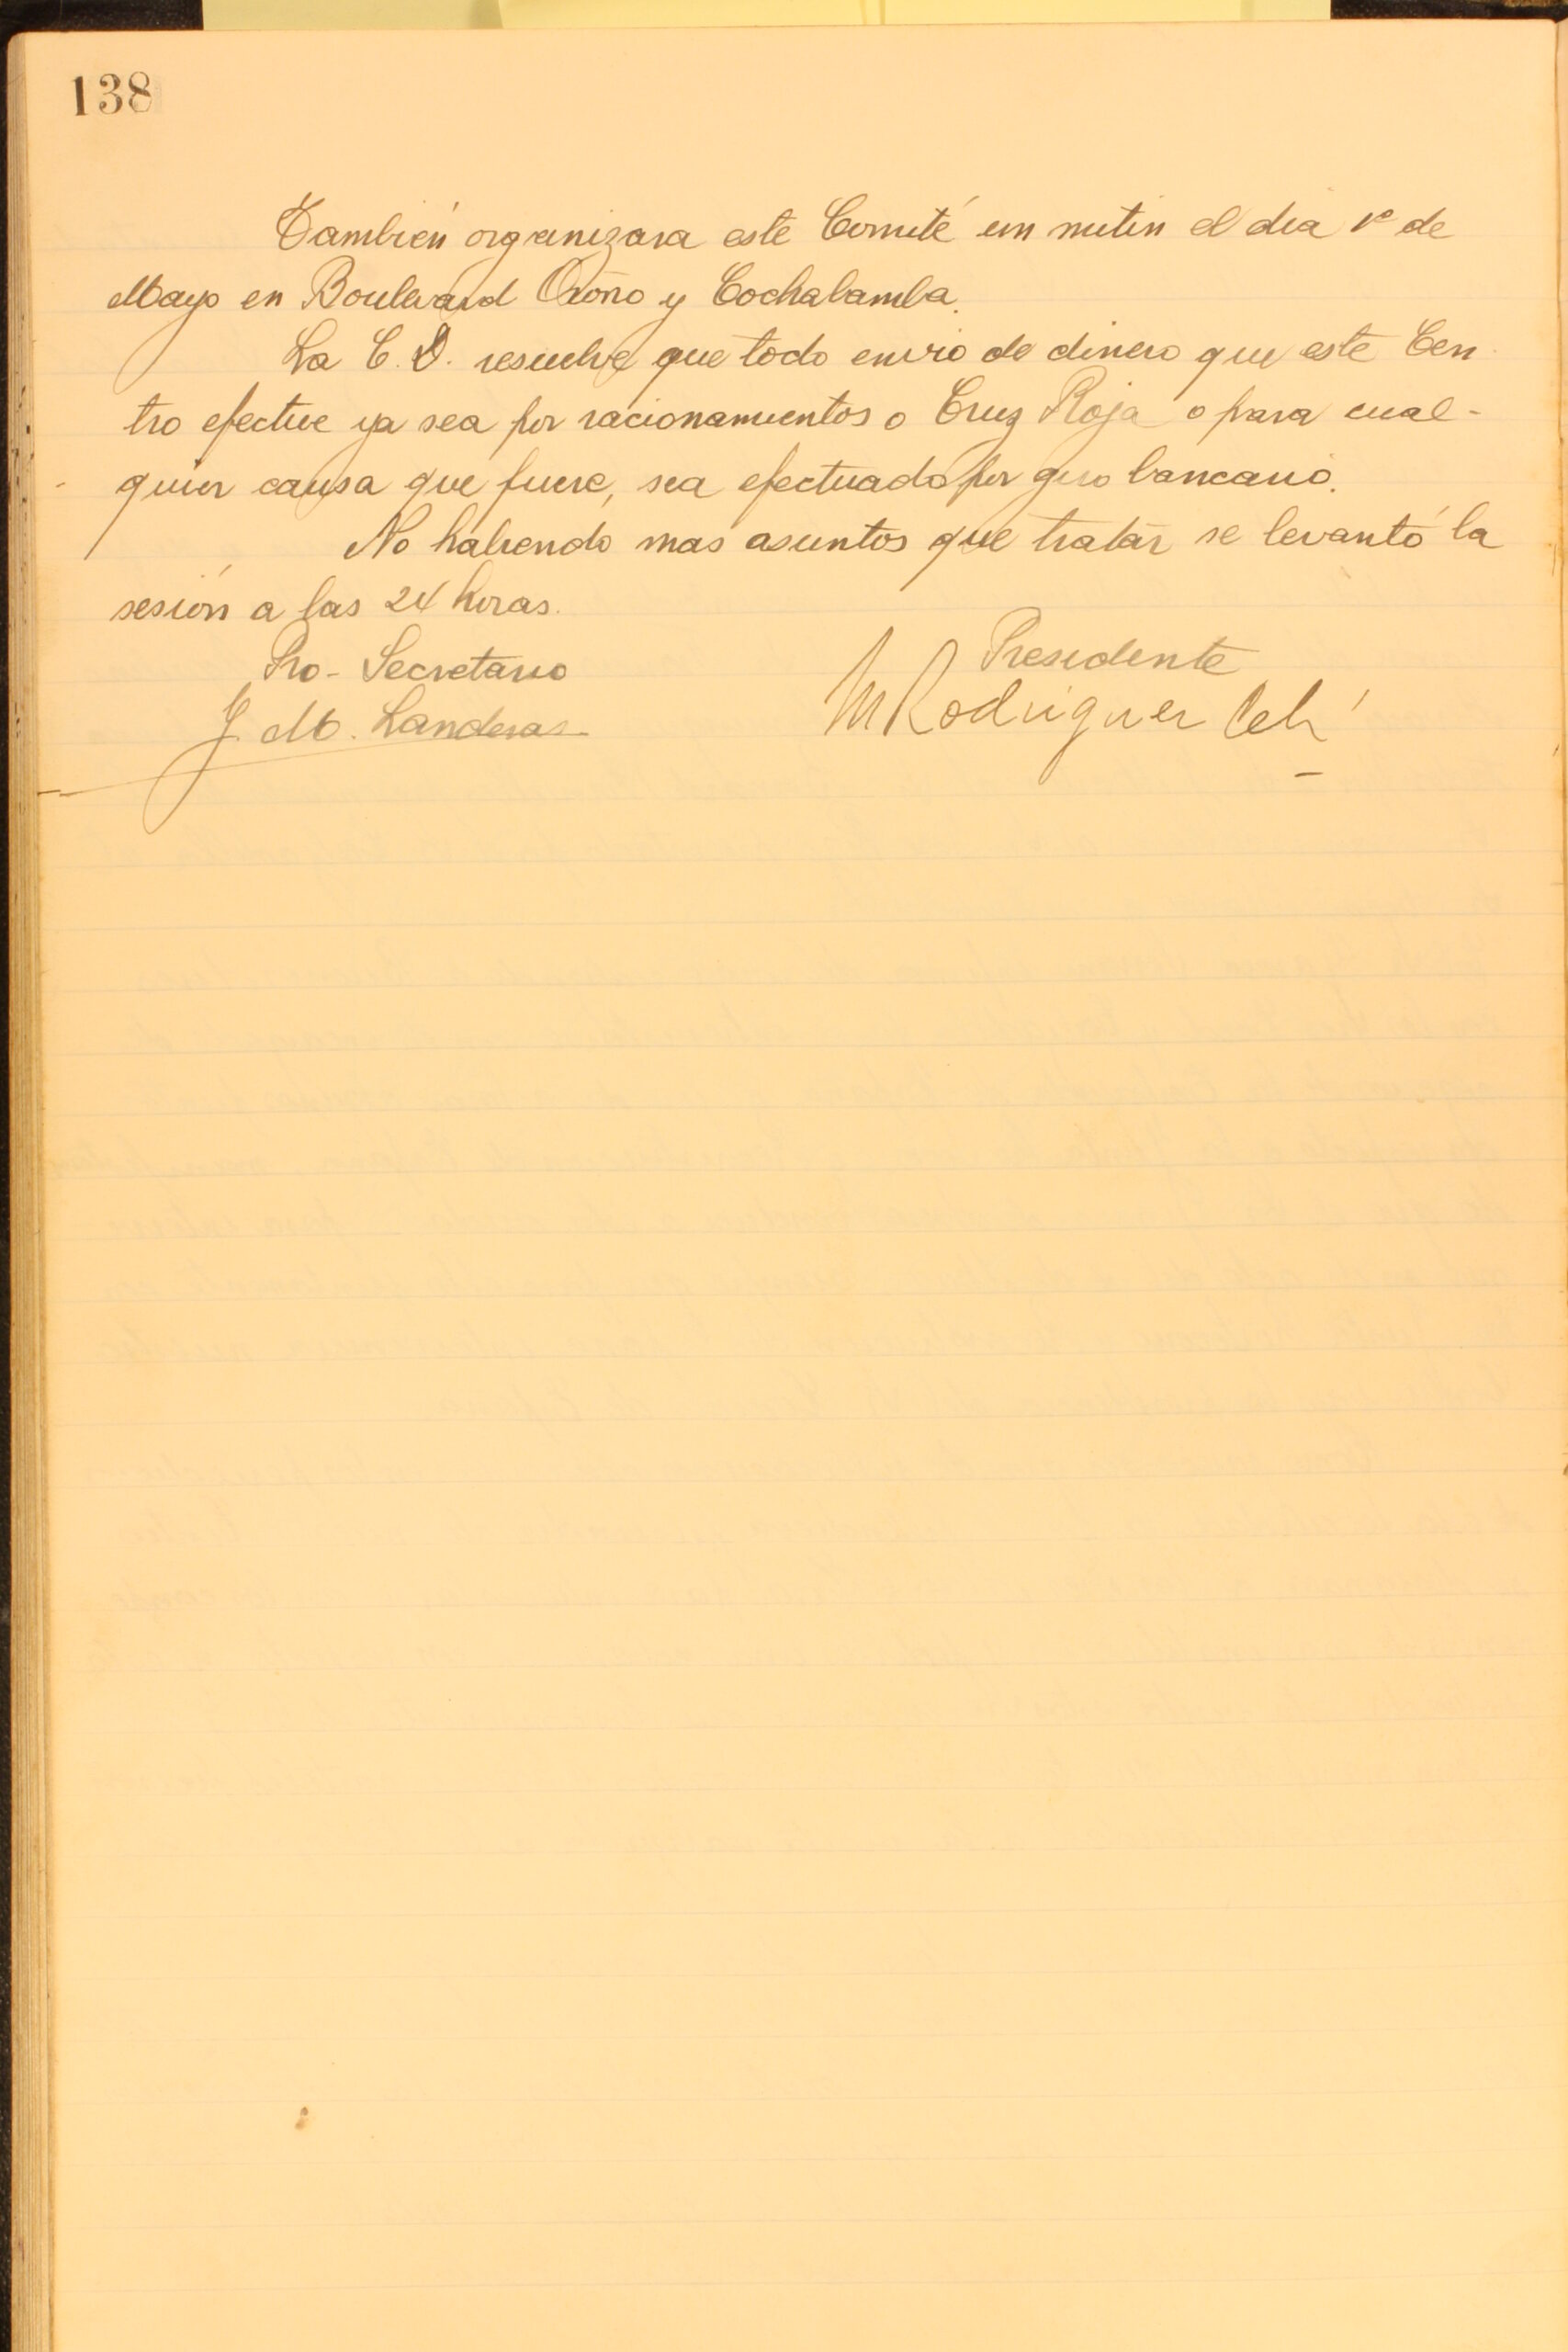 138
También organizara este Comité un mitin el dia 1º de
Mayo en Boulevard Oroño y Cochabamba.
La C. D. resuelve que todo envio de dinero que este Cen
tro efectue ya sea por racionamientos o Cruz Roja o para cual-
quier causa que fuere, sea efectuado por giro bancario.
No habiendo mas asuntos que tratar se levantó la
sesión a las 24 horas.
Pro-Secretario
Presidente
J. M. Landeras
M Rodriguez